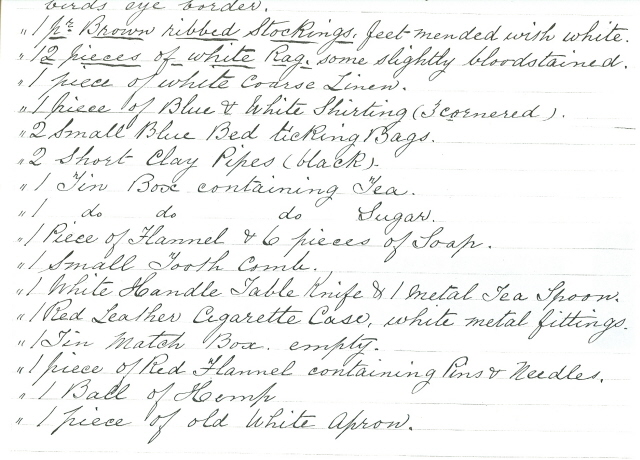 birds eye border.
" 1 pr Brown ribbed Stockings, feet mended with white.
" 12 pieces of white Rag, some slightly bloodstained.
" 1 piece of white Coarse Linen.
" 1 piece of Blue & White Shirting (3 cornered).
" 2 Small Blue Bed ticking Bags.
" 2 Short Clay Pipes (black).
" 1 Tin Box containing Tea.
" 1 do do do Sugar.
" 1 Piece of Flannel & 6 pieces of Soap.
" 1 Small Tooth Comb.
" 1 White Handle Table Knife & 1 Metal Tea Spoon.
" 1 Red Leather Cigarette Case, white metal fittings.
" 1 Tin Match Box. empty.
" 1 piece of Red Flannel containing Pins & Needles.
" 1 Ball of Hemp
" 1 piece of old White Apron.